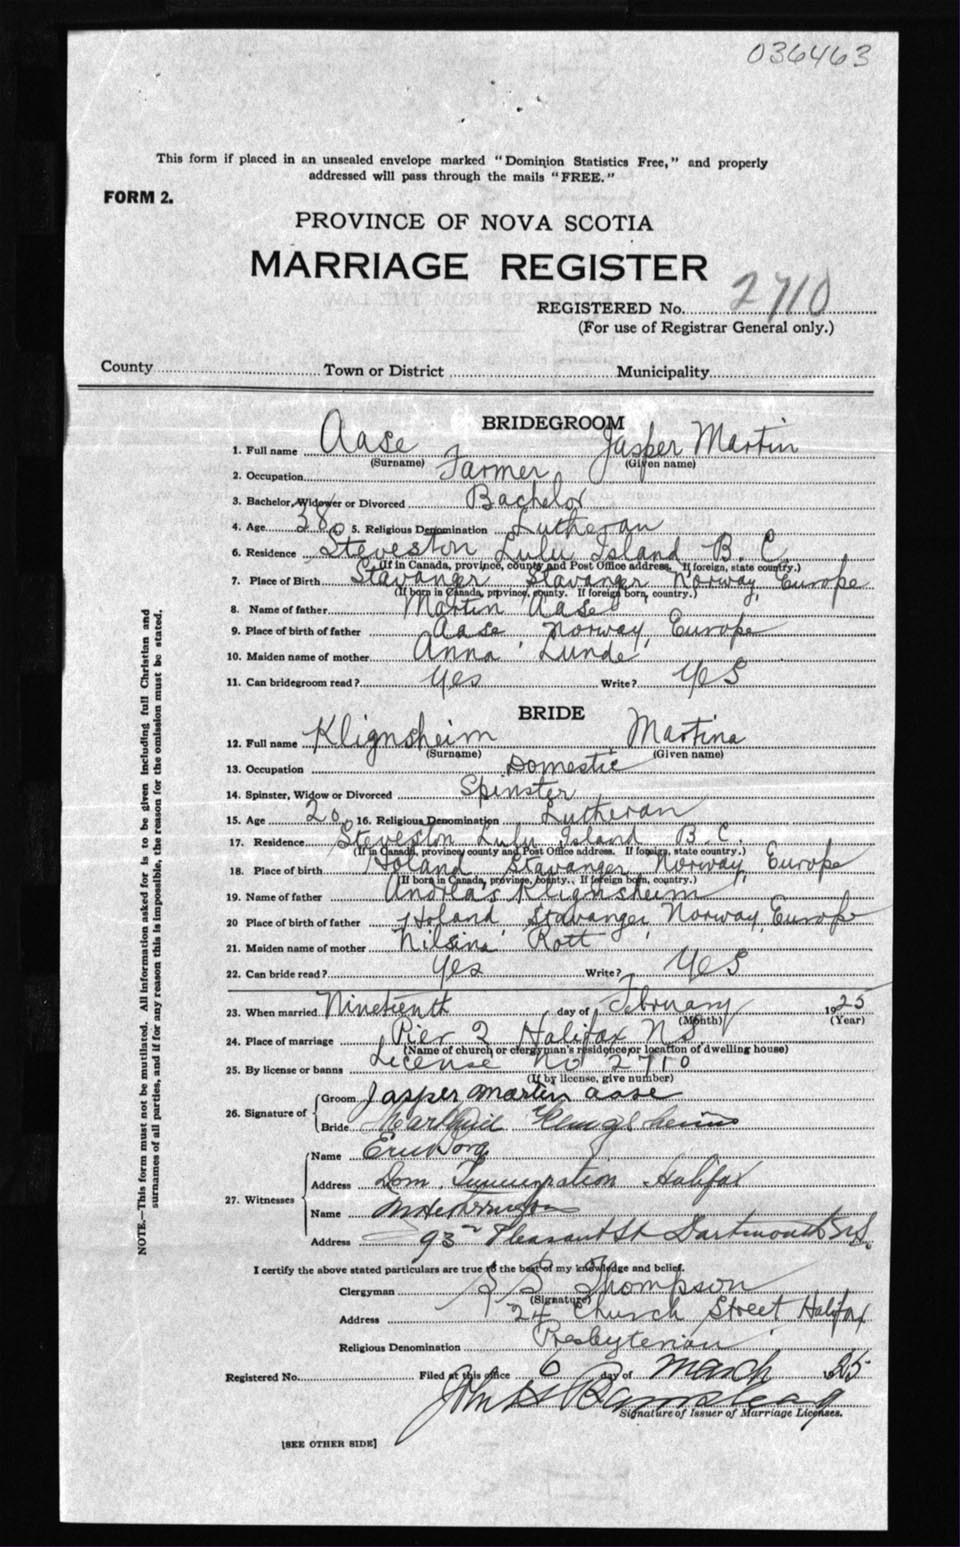 036463
This form if placed in an unsealed envelope marked "Dominion Statistics Free," and properly
addressed will pass through the mails "FREE."
FORM 2.
PROVINCE OF NOVA SCOTIA
MARRIAGE REGISTER
REGISTERED No. 2710
(For use of Registrar General only.)
County Town or District Municipality
BRIDEGROOM
1. Full name Aase Jasper Martin
(Surname) (Given name)
2. Occupation Farmer
3. Bachelor, Widower or Divorced Bachelor
4. Age 38 5. Religious Denomination Lutheran
6. Residence Steveston Lulu Island B. C.
(If in Canada, province, county and Post Office address. If foreign, state country.)
7. Place of Birth Stavanger Stavanger Norway, Europe
(If born in Canada, province, county. If foreign born, country.)
8. Name of father Martin Aase
9. Place of birth of father Aase, Norway, Europe
10. Maiden name of mother Anna Lunde
11. Can bridegroom read? Yes Write? Yes
BRIDE
12. Full name Klignsheim Martina
(Surname) (Given name)
13. Occupation Domestic
14. Spinster, Widow or Divorced Spinster
15. Age 20 16. Religious Denomination Lutheran
17. Residence Steveston Lulu Island B. C.
(If in Canada, province, county and Post Office address. If foreign, state country.)
18. Place of birth Holand Stavanger Norway, Europe
(If born in Canada, province, county. If foreign born, country.)
19. Name of father Andreas Klignsheim
20 Place of birth of father Holand, Stavanger, Norway, Europe
21. Maiden name of mother Nilsina Rott
22. Can bride read? Yes Write? Yes
23. When married Nineteenth day of February 1925
(Month) (Year)
24. Place of marriage Pier 2 Halifax N S
(Name of church or clergyman's residence or location of dwelling house)
25. By license or banns License No 2710
(If by license, give number)
26. Signature of Groom Jasper Martin Aase
Bride
27. Witnesses Name
Address Dom. Immigration Halifax
Name
Address 93 Pleasant St Dartmouth N.S.
I certify the above stated particulars are true to the best of my knowledge and belief.
Clergyman Thompson
(Signature)
Address 24 Church Street Halifax
Religious Denomination Presbyterian
Registered No. Filed at this office 6 day of March 25
John
Signature of Issuer of Marriage Licenses.
[SEE OTHER SIDE]
NOTE.—This form must not be mutilated. All information asked for is to be given including full Christian and
surnames of all parties, and if for any reason this is impossible, the reason for the omission must be stated.